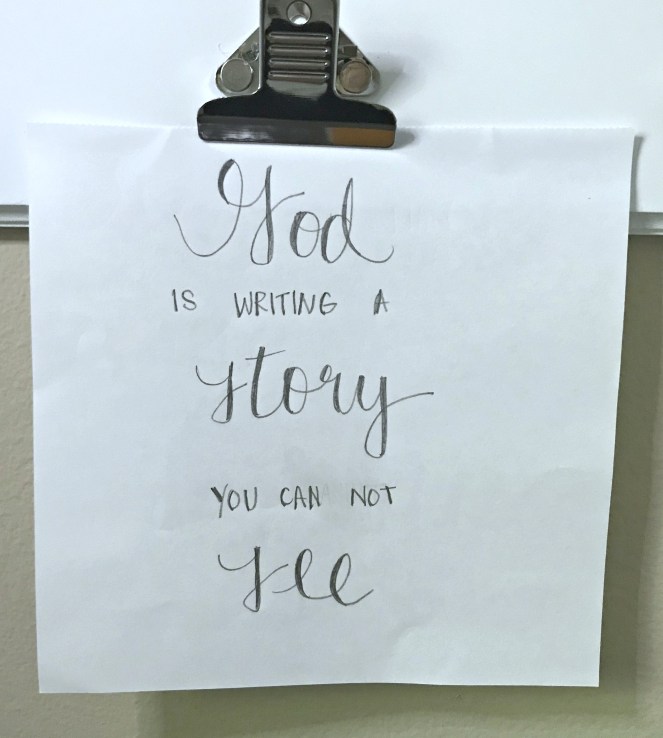 God
IS WRITING A
story
YOU CAN NOT
see